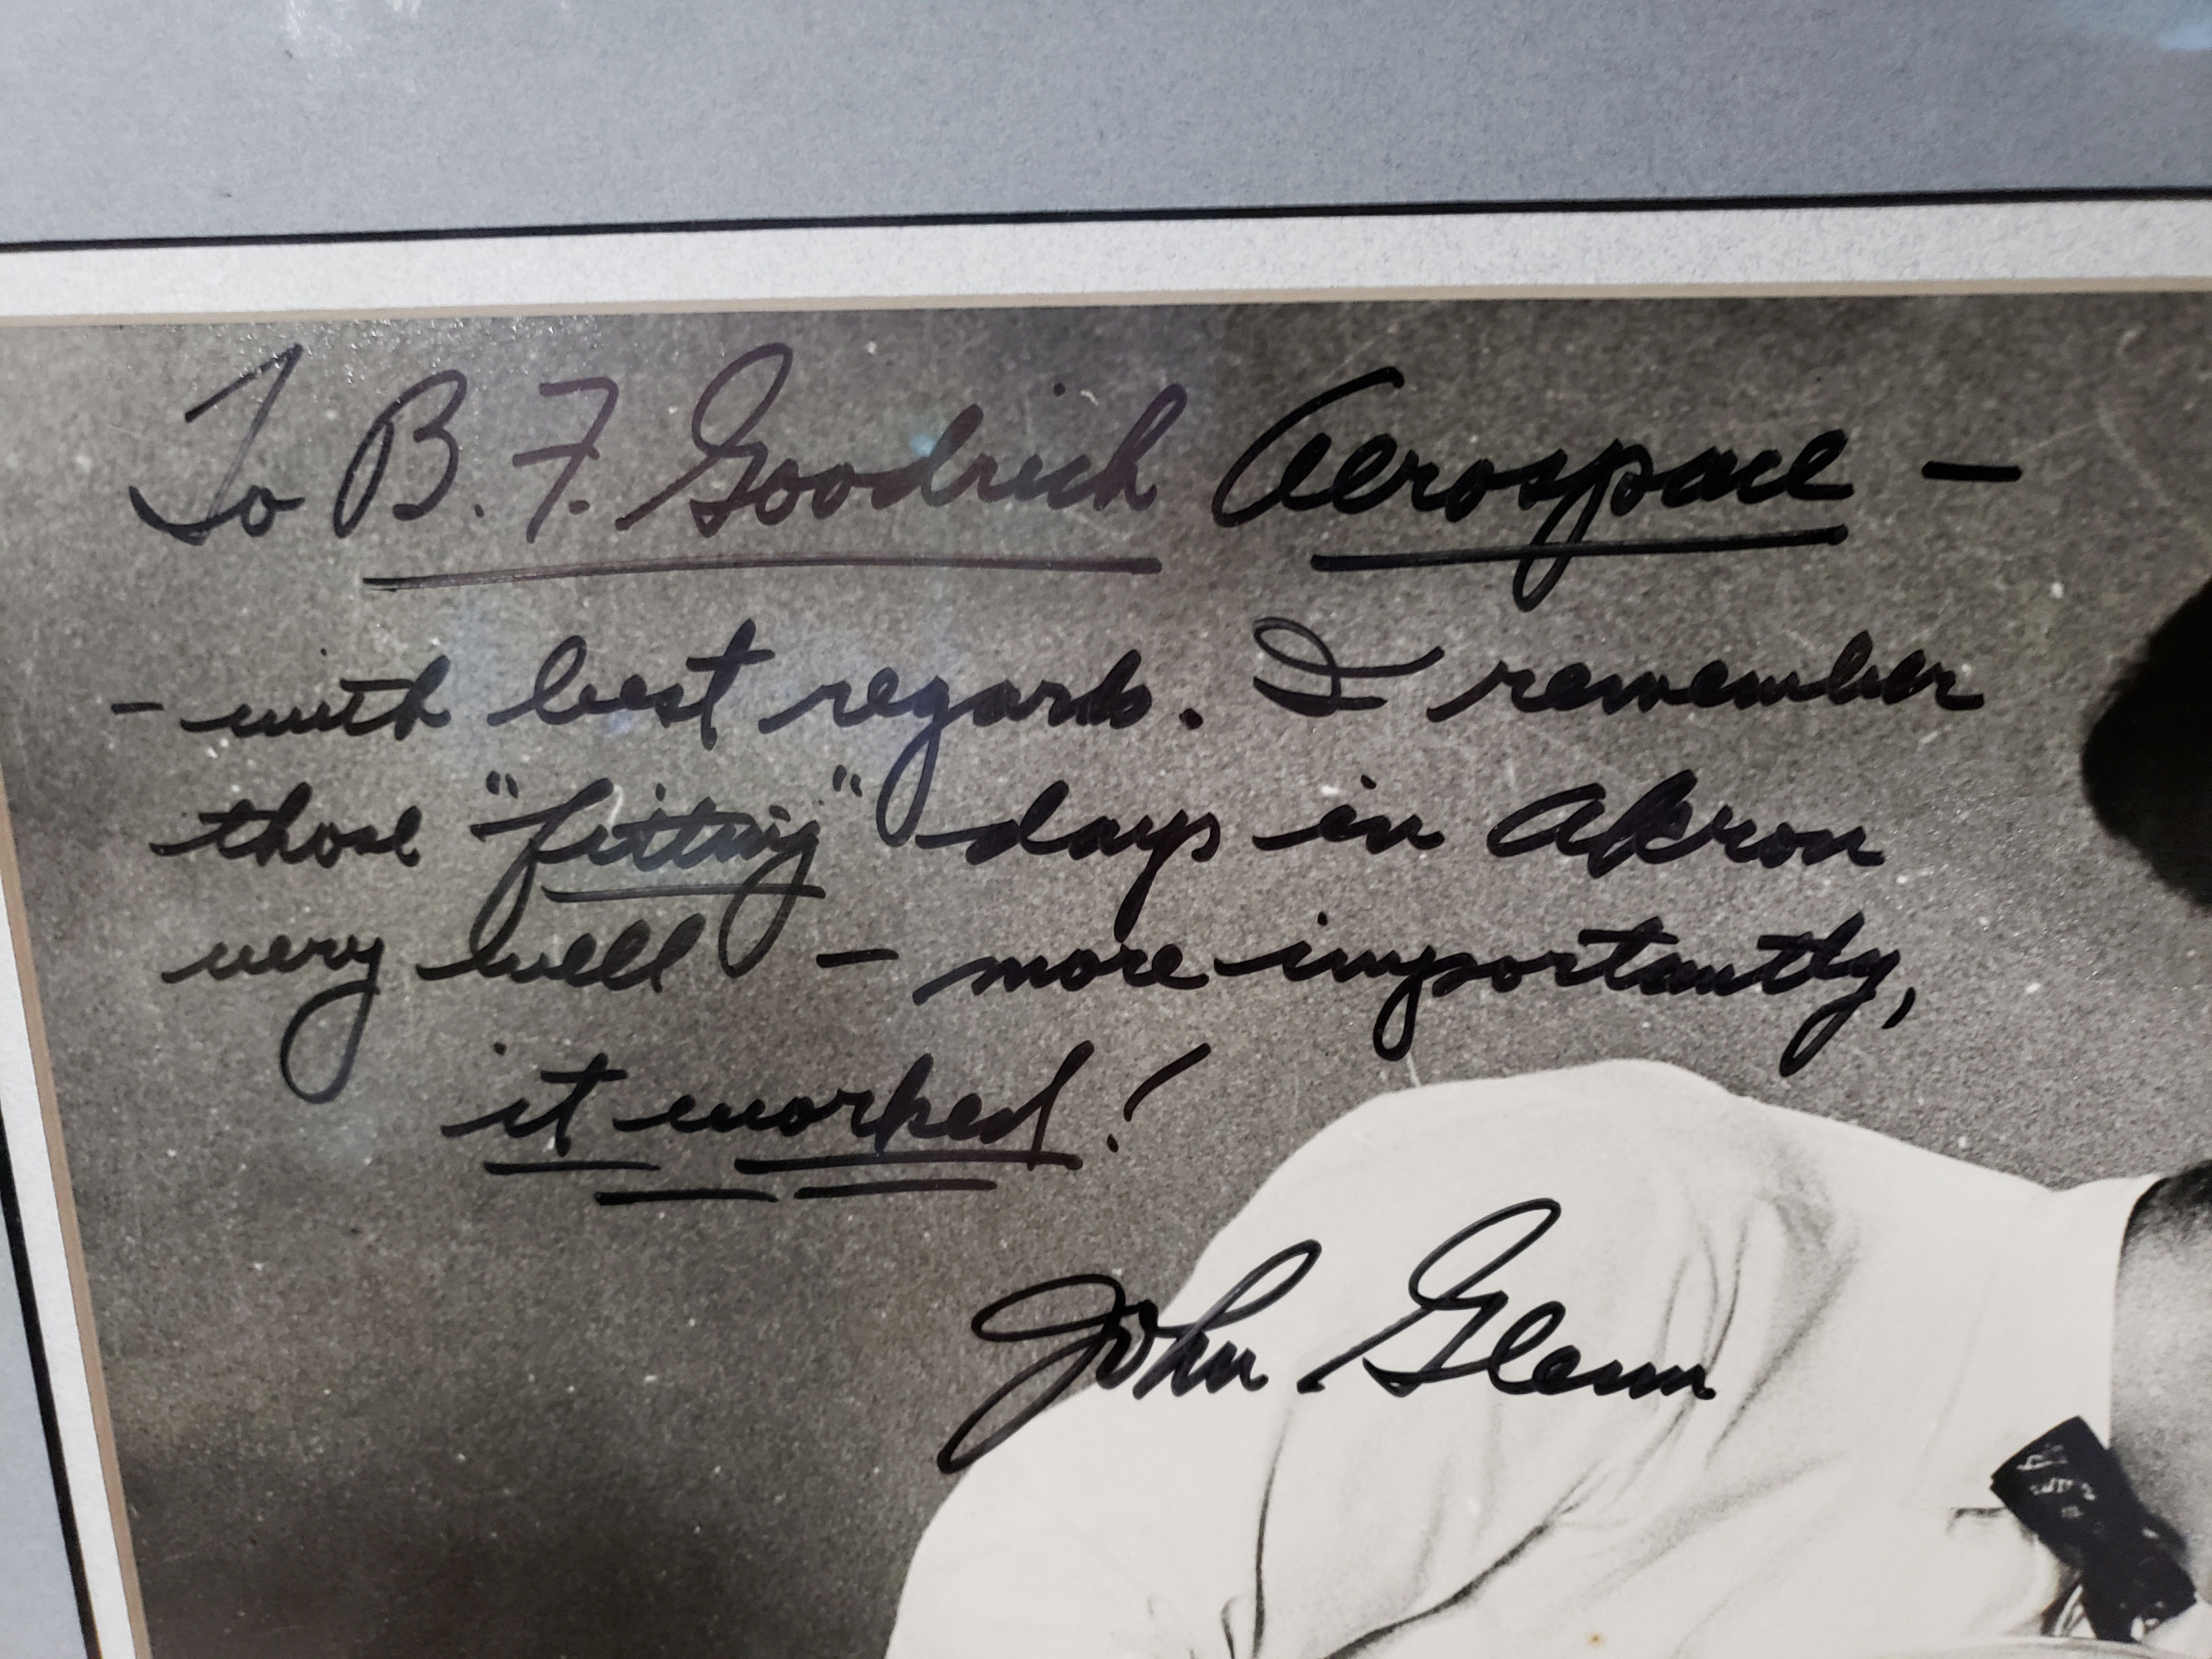 To B. F. Goodrich Aerospace —
- with best regards. I remember
those "fitting" days in Akron
very well — more importantly,
it worked!
John Glenn